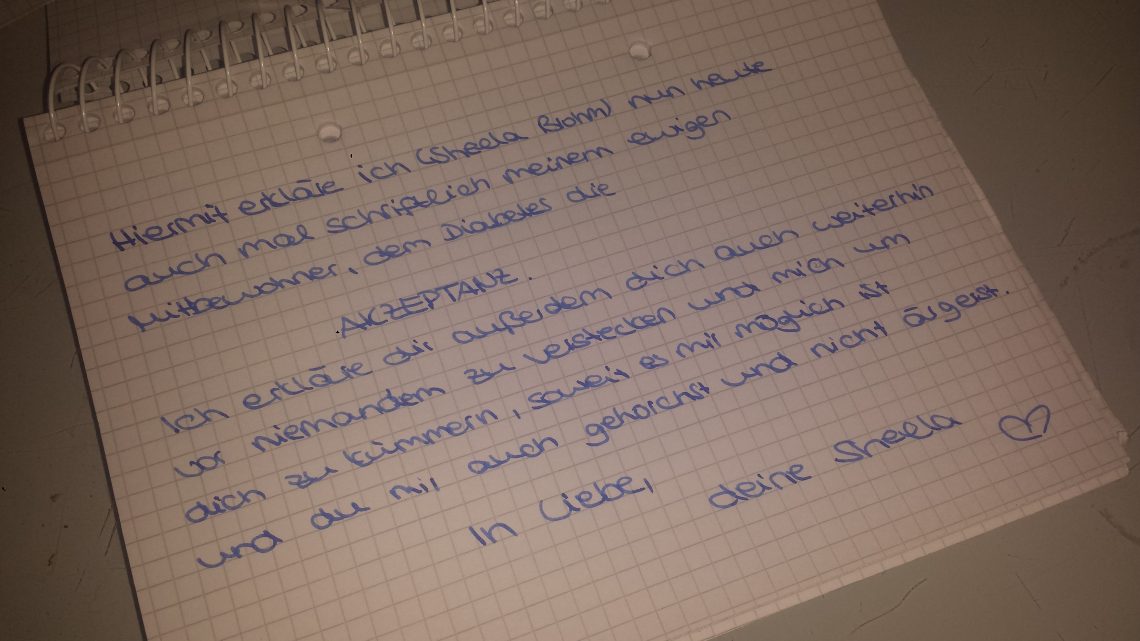 Hiermit erkläre ich (Sheela Blohm) nun heute
auch mal schriftlich meinem ewigen
Mitbewohner, dem Diabetes die
AKZEPTANZ.
Ich erkläre dir außerdem dich auch weiterhin
vor niemandem zu verstecken und mich um
dich zu kümmern, soweit es mir möglich ist
und du mir auch gehorchst und nicht ärgerst.
In Liebe,
deine Sheela ♡